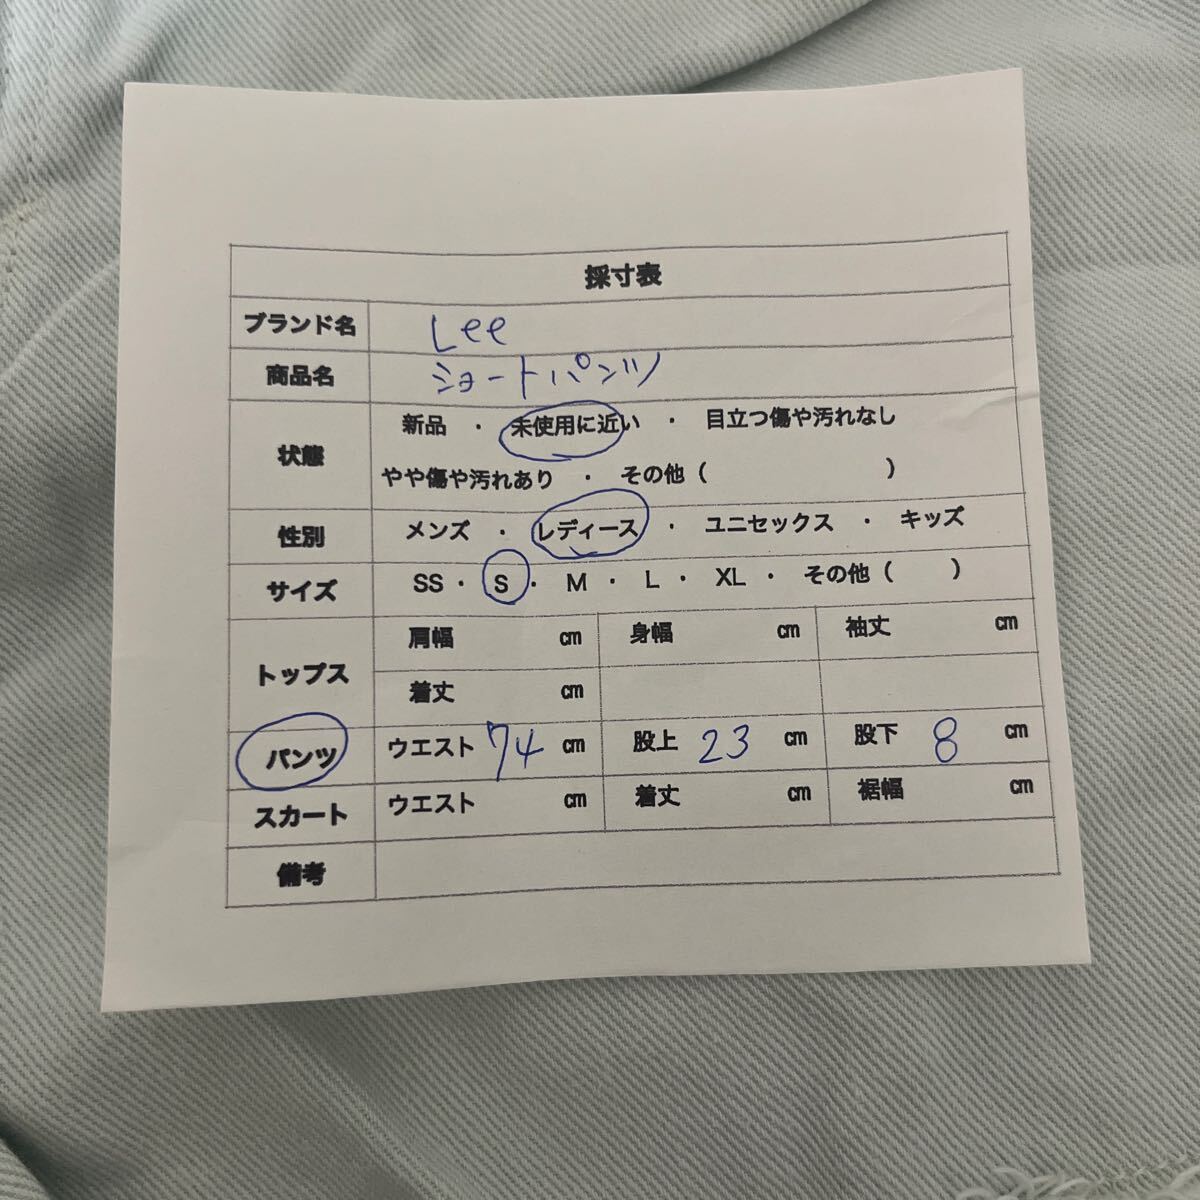 採寸表
ブランド名 Lee
商品名 ショートパンツ
状態 新品 ・ 未使用に近い ・ 目立つ傷や汚れなし
やや傷や汚れあり ・ その他（ ）
性別 メンズ ・ レディース ・ ユニセックス ・ キッズ
サイズ SS ・ S ・ M ・ L ・ XL ・ その他（ ）
トップス 肩幅 ㎝ 身幅 ㎝ 袖丈 ㎝
着丈 ㎝
パンツ ウエスト 74 ㎝ 股上 23 ㎝ 股下 8 ㎝
スカート ウエスト ㎝ 着丈 ㎝ 裾幅 ㎝
備考